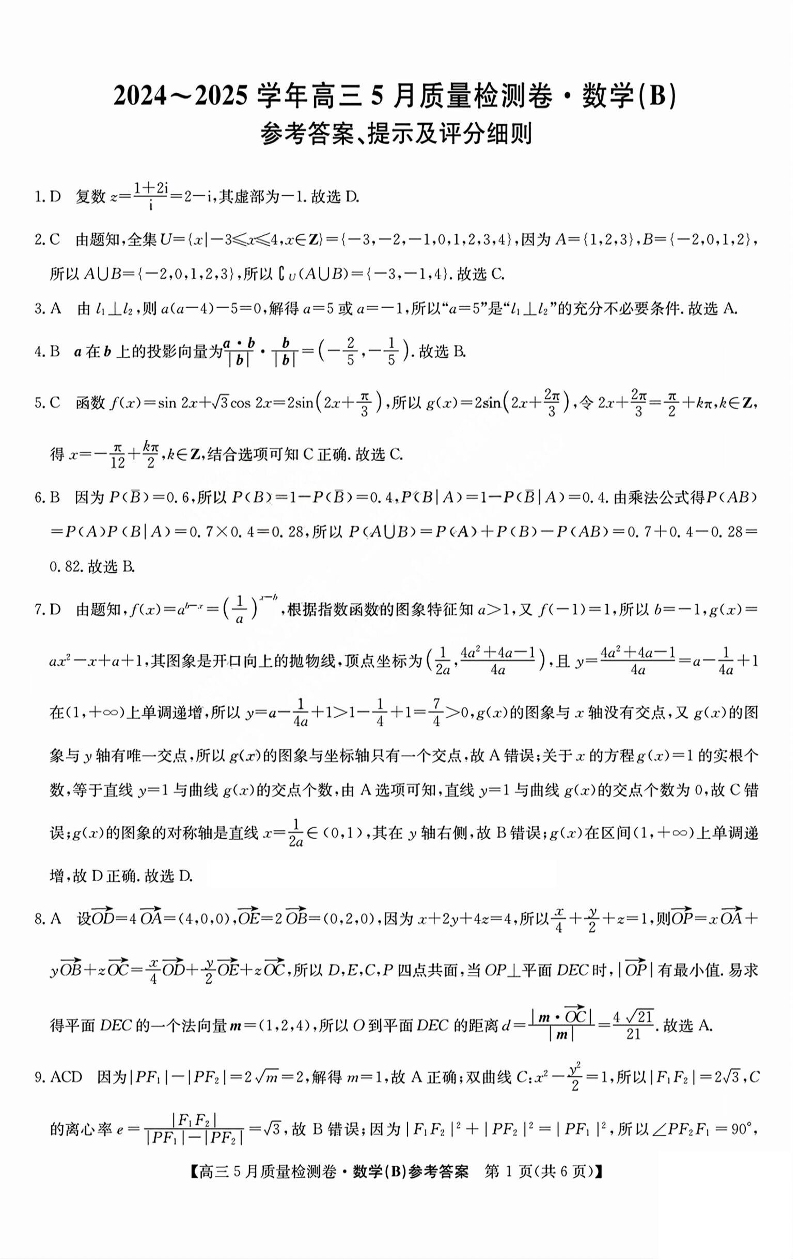 2024～2025 学年高三 5 月质量检测卷·数学(B)
参考答案、提示及评分细则
1. D 复数 z=\frac{1+2i}{i}=2-i,其虚部为-1. 故选 D.
2. C 由题知,全集U={x|-3⩽x⩽4,x∈Z}={-3,-2,-1,0,1,2,3,4},因为 A={1,2,3},B={-2,0,1,2},
所以 A∪B={-2,0,1,2,3},所以∁_U(A∪B)={-3,-1,4}. 故选 C.
3. A 由 l₁⊥l₂,则 a(a-4)-5=0,解得 a=5 或 a=-1,所以“a=5”是“l₁⊥l₂”的充分不必要条件. 故选 A.
4. B a 在 b 上的投影向量为\frac{a·b}{|b|}·\frac{b}{|b|}=(-\frac{2}{5},-\frac{1}{5}). 故选 B.
5. C 函数 f(x)=sin 2x+√3cos 2x=2sin(2x+\frac{π}{3}),所以 g(x)=2sin(2x+\frac{2π}{3}),令 2x+\frac{2π}{3}=\frac{π}{2}+kπ,k∈Z,
得 x=-\frac{π}{12}+\frac{kπ}{2},k∈Z,结合选项可知 C 正确. 故选 C.
6. B 因为 P(\overline{B})=0.6,所以 P(B)=1-P(\overline{B})=0.4,P(B|A)=1-P(\overline{B}|A)=0.4. 由乘法公式得P(AB)
=P(A)P(B|A)=0.7×0.4=0.28,所以 P(A∪B)=P(A)+P(B)-P(AB)=0.7+0.4-0.28=
0.82. 故选 B.
7. D 由题知,f(x)=a^{b-x}=(\frac{1}{a})^{x-b},根据指数函数的图象特征知 a>1,又 f(-1)=1,所以 b=-1,g(x)=
ax²-x+a+1,其图象是开口向上的抛物线,顶点坐标为(\frac{1}{2a},\frac{4a²+4a-1}{4a}),且 y=\frac{4a²+4a-1}{4a}=a-\frac{1}{4a}+1
在(1,+∞)上单调递增,所以 y=a-\frac{1}{4a}+1>1-\frac{1}{4}+1=\frac{7}{4}>0,g(x)的图象与 x 轴没有交点,又 g(x)的图
象与 y 轴有唯一交点,所以 g(x)的图象与坐标轴只有一个交点,故 A 错误;关于 x 的方程g(x)=1 的实根个
数,等于直线 y=1 与曲线 g(x)的交点个数,由 A 选项可知,直线 y=1 与曲线 g(x)的交点个数为 0,故 C 错
误;g(x)的图象的对称轴是直线 x=\frac{1}{2a}∈(0,1),其在 y 轴右侧,故 B 错误;g(x)在区间(1,+∞)上单调递
增,故 D 正确. 故选 D.
8. A 设\overrightarrow{OD}=4\overrightarrow{OA}=(4,0,0),\overrightarrow{OE}=2\overrightarrow{OB}=(0,2,0),因为 x+2y+4z=4,所以\frac{x}{4}+\frac{y}{2}+z=1,则\overrightarrow{OP}=x\overrightarrow{OA}+
y\overrightarrow{OB}+z\overrightarrow{OC}=\frac{x}{4}\overrightarrow{OD}+\frac{y}{2}\overrightarrow{OE}+z\overrightarrow{OC},所以 D,E,C,P 四点共面,当 OP⊥平面 DEC时,|\overrightarrow{OP}|有最小值. 易求
得平面 DEC 的一个法向量 m=(1,2,4),所以 O 到平面 DEC 的距离 d=\frac{|m·\overrightarrow{OC}|}{|m|}=\frac{4√21}{21}. 故选 A.
9. ACD 因为|PF₁|-|PF₂|=2√m=2,解得 m=1,故 A 正确;双曲线 C:x²-\frac{y²}{2}=1,所以|F₁F₂|=2√3,C
的离心率 e=\frac{|F₁F₂|}{|PF₁|-|PF₂|}=√3,故 B 错误;因为|F₁F₂|²+|PF₂|²=|PF₁|²,所以∠PF₂F₁=90°,
【高三 5 月质量检测卷·数学(B)参考答案 第 1 页(共 6 页)】